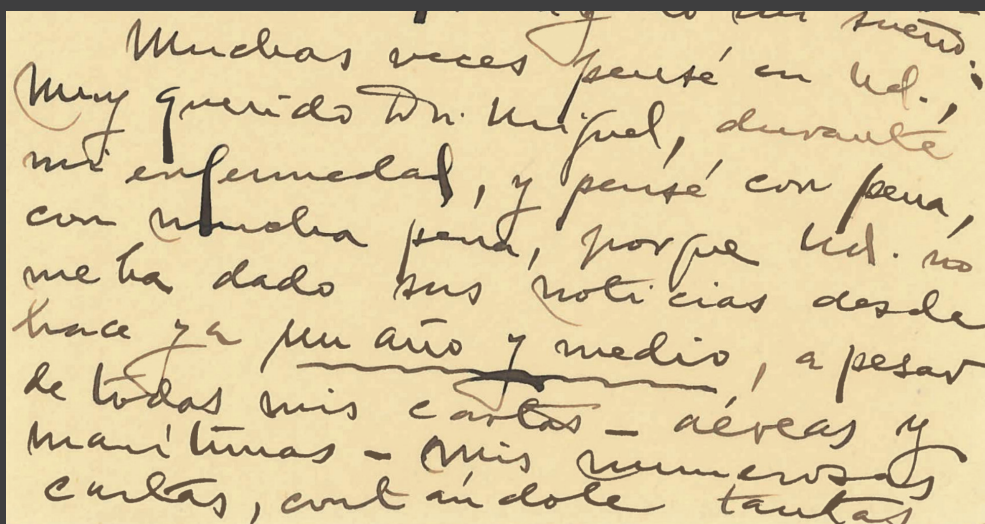 sueño.
Muchas veces pensé en Ud.,
muy querido Dn. Miguel, durante
mi enfermedad, y pensé con pena,
con mucha pena, porque Ud. no
me ha dado sus noticias desde
hace ya un año y medio, a pesar
de todas mis cartas – aéreas y
marítimas – mis numerosas
cartas, contándole tantas